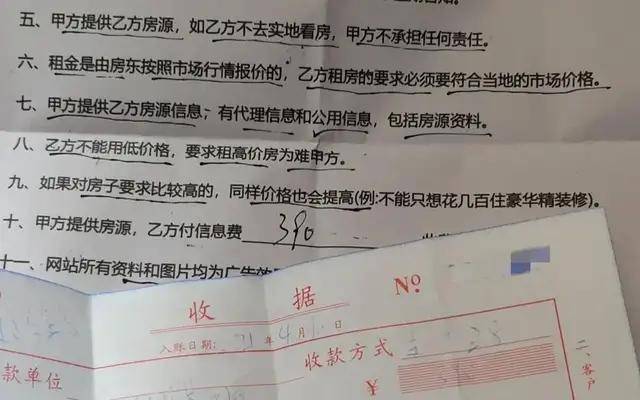 五、甲方提供乙方房源，如乙方不去实地看房，甲方不承担任何责任。
六、租金是由房东按照市场行情报价的，乙方租房的要求必须要符合当地的市场价格。
七、甲方提供乙方房源信息，有代理信息和公用信息，包括房源资料。
八、乙方不能用低价格，要求租高价房为难甲方。
九、如果对房子要求比较高的，同样价格也会提高(例:不能只想花几百住豪华精装修)。
十、甲方提供房源，乙方付信息费 390
十一、网站所有资料和图片均为广告效
收 据 №
入账日期: 21 年 4 月 日
收款方式
款单位
¥
二、客户